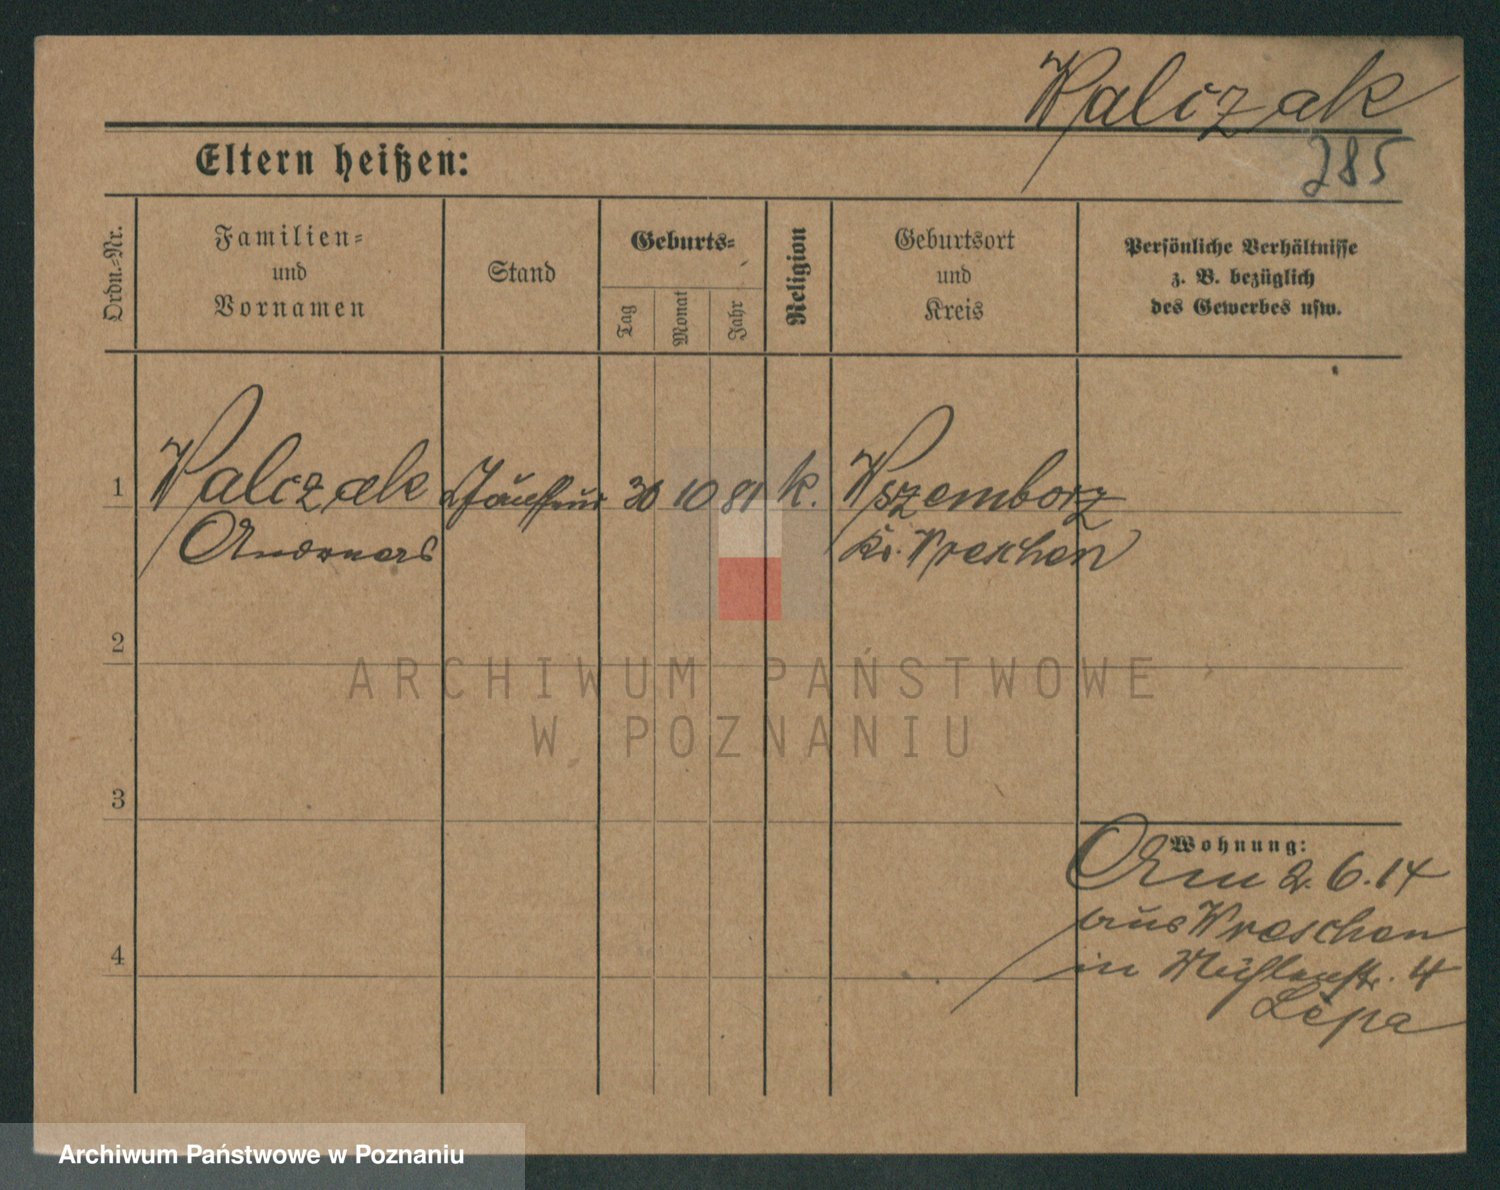 Walczak
285
Eltern heißen:
Ordn.-Nr.
Familien-
und
Vornamen
Stand
Geburts-
Tag
Monat
Jahr
Religion
Geburtsort
und
Kreis
Persönliche Verhältnisse
z. B. bezüglich
des Gewerbes usw.
1
Walczak
Andreas
30
10
81
k.
Wszemborz
Kr. Wreschen
2
3
4
Wohnung:
2.6.14
aus Wreschen
in Mühlenstr. 4
Lepa
ARCHIWUM PAŃSTWOWE
W POZNANIU
Archiwum Państwowe w Poznaniu